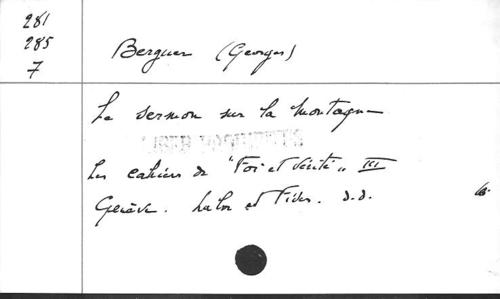 281
285
7
Berguer (Georges)
Le sermon sur la montagne
Les cahiers de "Foi et Vérité" III
Genève. Labor et Fides. s.d.